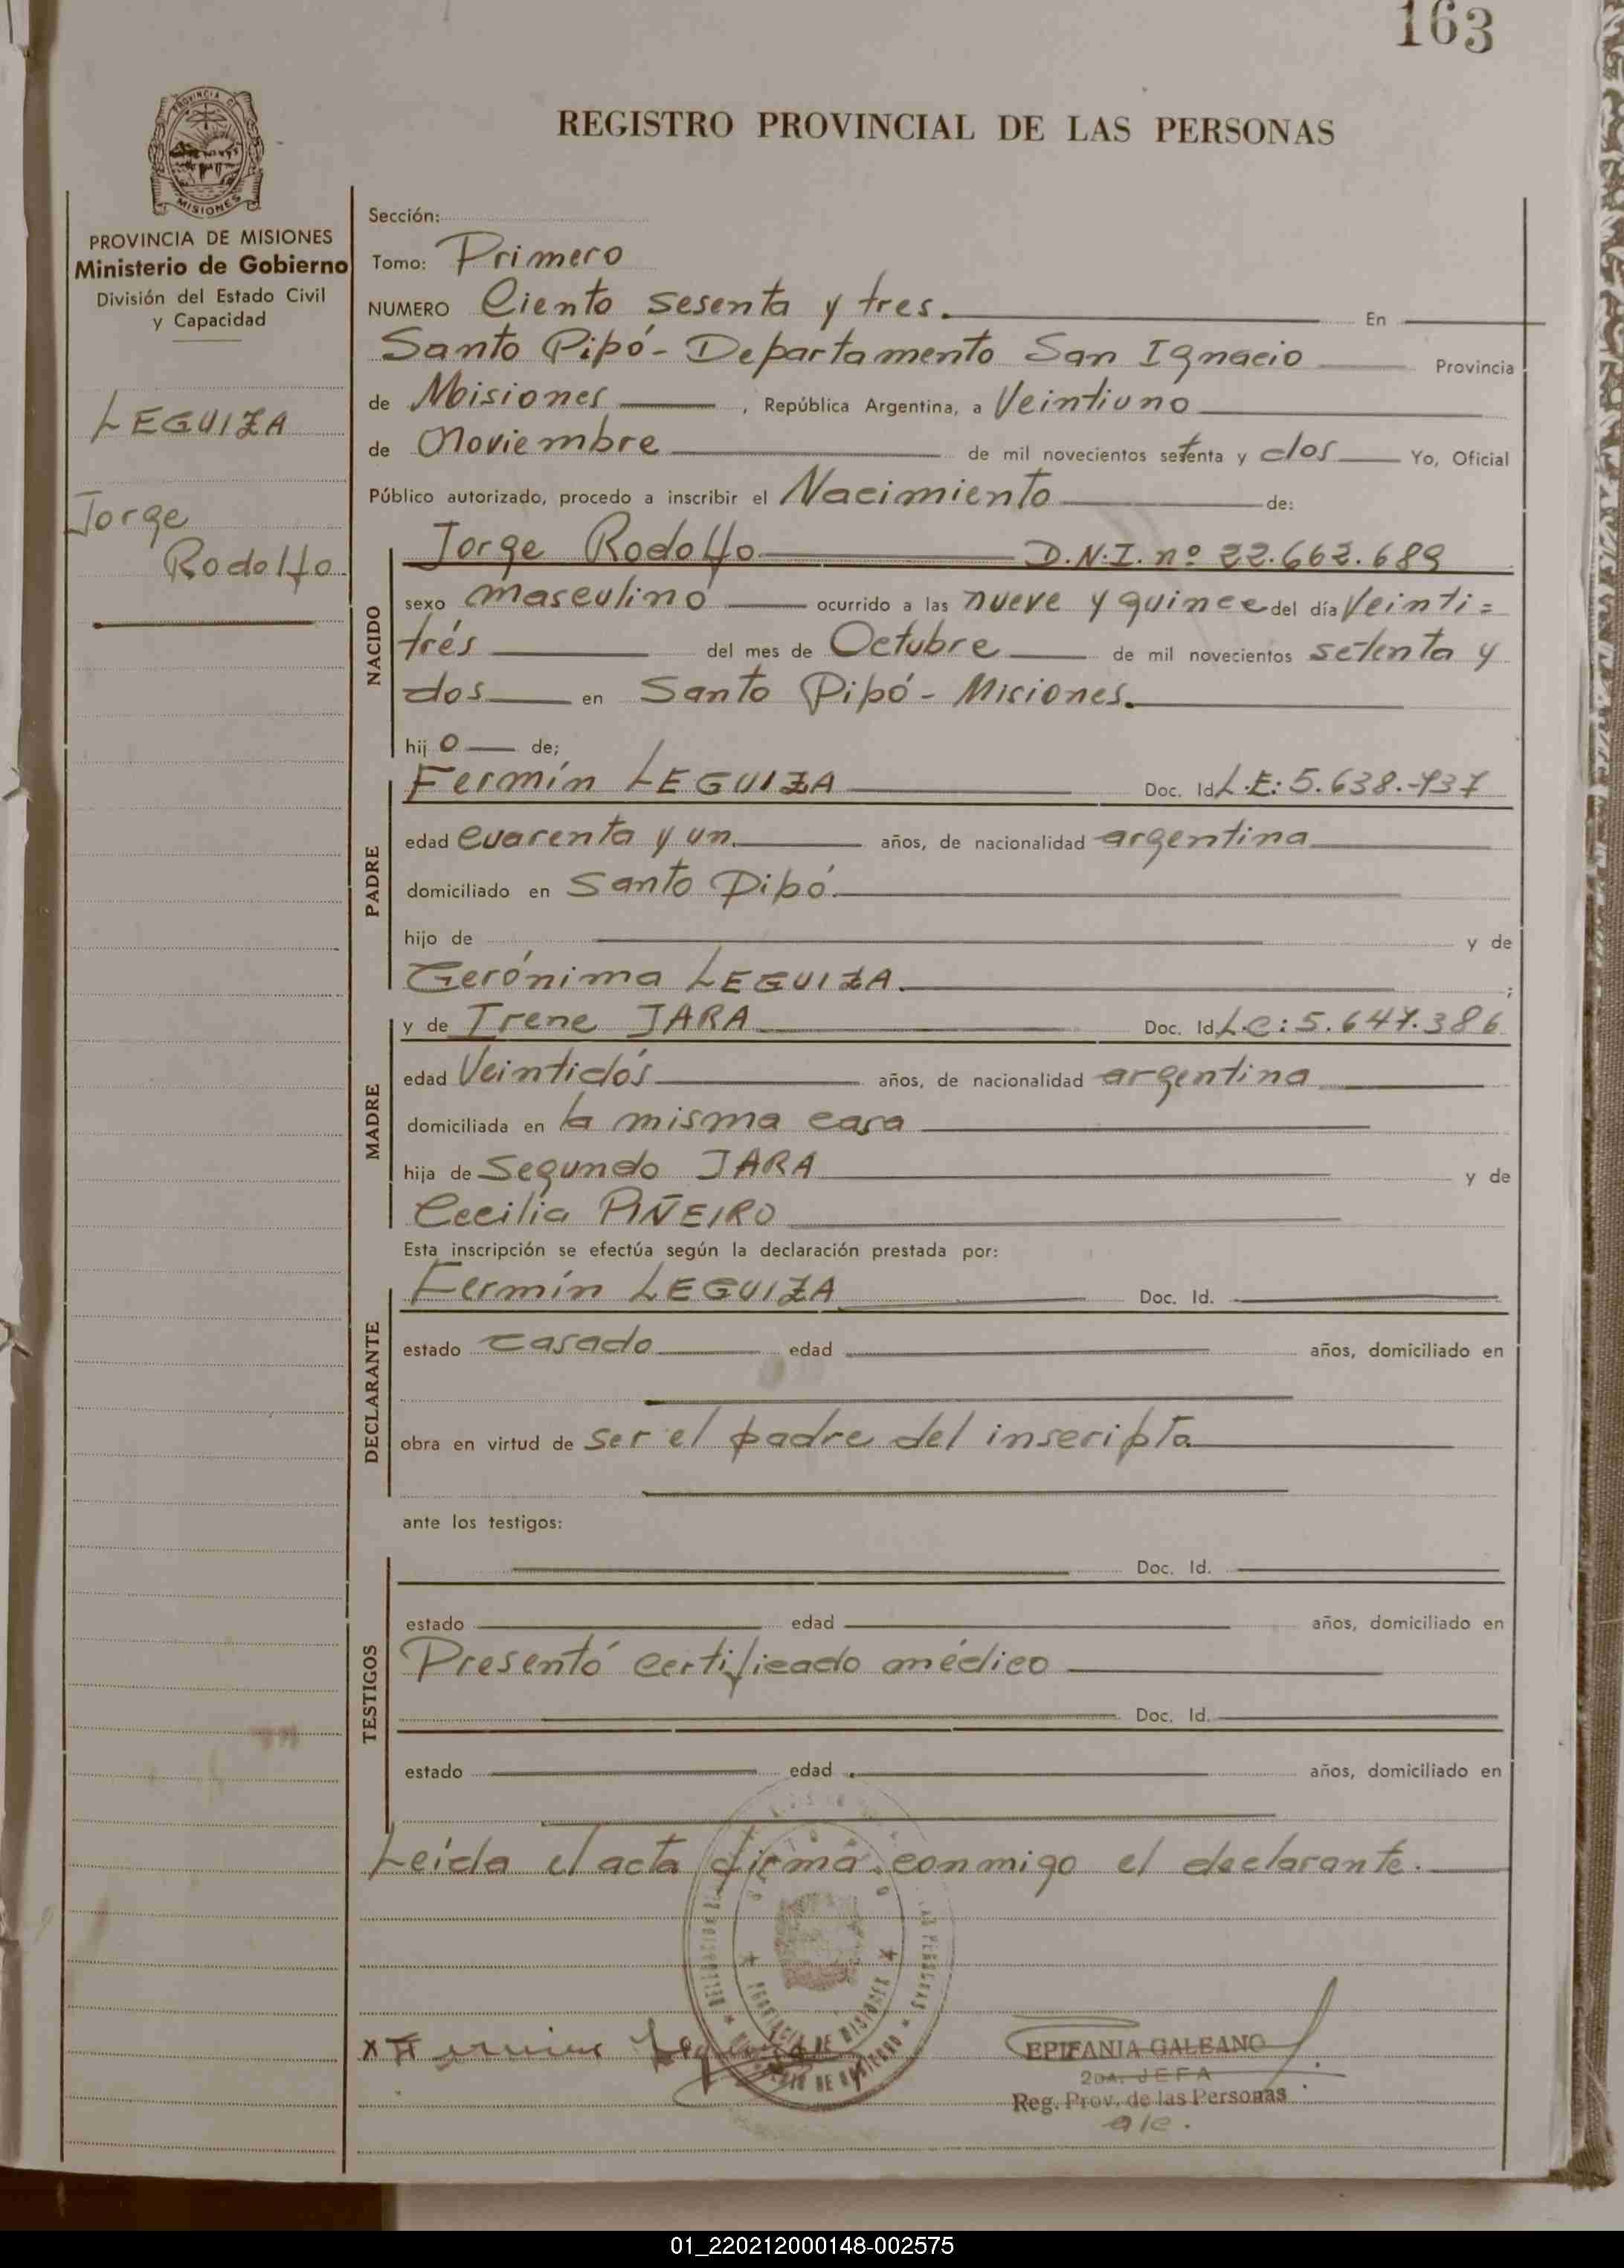 163
REGISTRO PROVINCIAL DE LAS PERSONAS
PROVINCIA DE
MISIONES
PROVINCIA DE MISIONES
Ministerio de Gobierno
División del Estado Civil
y Capacidad
LEGUIZA
Jorge
Rodolfo
Sección:
Tomo: Primero
NUMERO Ciento sesenta y tres. En
Santo Pipó - Departamento San Ignacio Provincia
de Misiones, República Argentina, a Veintiuno
de Noviembre de mil novecientos setenta y dos Yo, Oficial
Público autorizado, procedo a inscribir el Nacimiento de:
NACIDO
Jorge Rodolfo D.N.I. nº 22.662.689
sexo masculino ocurrido a las nueve y quince del día Veinti=
trés del mes de Octubre de mil novecientos setenta y
dos en Santo Pipó - Misiones.
hijo de;
PADRE
Fermín LEGUIZA Doc. Id. L.E: 5.638.937
edad cuarenta y un. años, de nacionalidad argentina
domiciliado en Santo Pipó.
hijo de y de
Gerónima LEGUIZA. ;
MADRE
y de Irene JARA Doc. Id. L.C: 5.647.386
edad Veintidós años, de nacionalidad argentina
domiciliada en la misma casa
hija de Segundo JARA y de
Cecilia PIÑEIRO
Esta inscripción se efectúa según la declaración prestada por:
DECLARANTE
Fermín LEGUIZA Doc. Id.
estado casado edad años, domiciliado en
obra en virtud de ser el padre del inscripto
ante los testigos:
TESTIGOS
Doc. Id.
estado edad años, domiciliado en
Presentó certificado médico
Doc. Id.
estado edad años, domiciliado en
Leída el acta firma conmigo el declarante.
PROVINCIA DE MISIONES
x Fermin Leguiza
EPIFANIA GALEANO
2DA. JEFA
Reg. Prov. de las Personas
a/c.
01_220212000148-002575